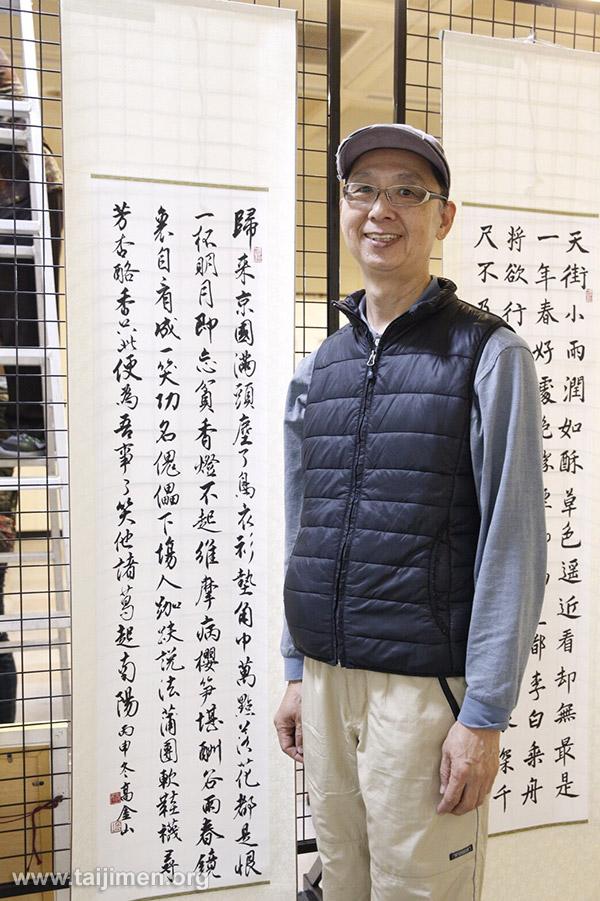 歸來京國滿頭塵了烏衣衫墊角巾萬點落花都是恨
一杯明月即忘貧香燈不起維摩病櫻筍堪酬谷雨春鏡
裏自看成一笑功名傀儡下場人跏趺說法蒲團軟鞋襪尋
芳杏酪香只此便為吾事了笑他諸葛起南陽丙申冬高金山
天街小雨潤如酥草色遥近看却無最是
一年春好處絕勝都李白乘舟
將欲行深千
尺不及
www.taijimen.org